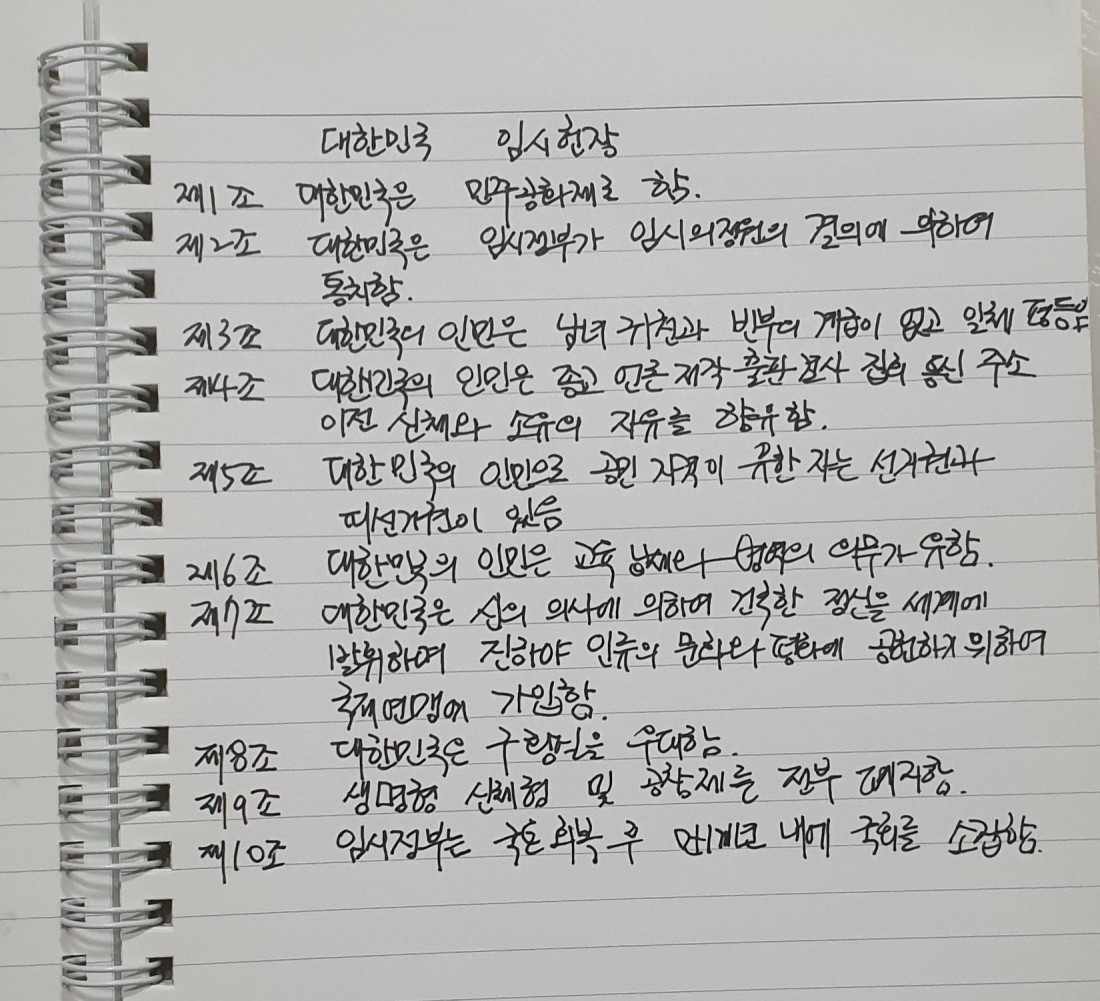 대한민국 임시헌장
제1조 대한민국은 민주공화제로 함.
제2조 대한민국은 임시정부가 임시의정원의 결의에 의하여
통치함.
제3조 대한민국의 인민은 남녀 귀천과 빈부의 계급이 없고 일체 평등임
제4조 대한민국의 인민은 종교 언론 저작 출판 결사 집회 통신 주소
이전 신체와 소유의 자유를 향유함.
제5조 대한민국의 인민으로 공민 자격이 유한 자는 선거권과
피선거권이 있음
제6조 대한민국의 인민은 교육 납세와 병역의 의무가 유함.
제7조 대한민국은 신의 의사에 의하여 건국한 정신을 세계에
발휘하며 진하야 인류의 문화와 평화에 공헌하기 위하여
국제연맹에 가입함.
제8조 대한민국은 구황실을 우대함.
제9조 생명형 신체형 및 공창제를 전부 폐지함.
제10조 임시정부는 국토 회복 후 만1개년 내에 국회를 소집함.